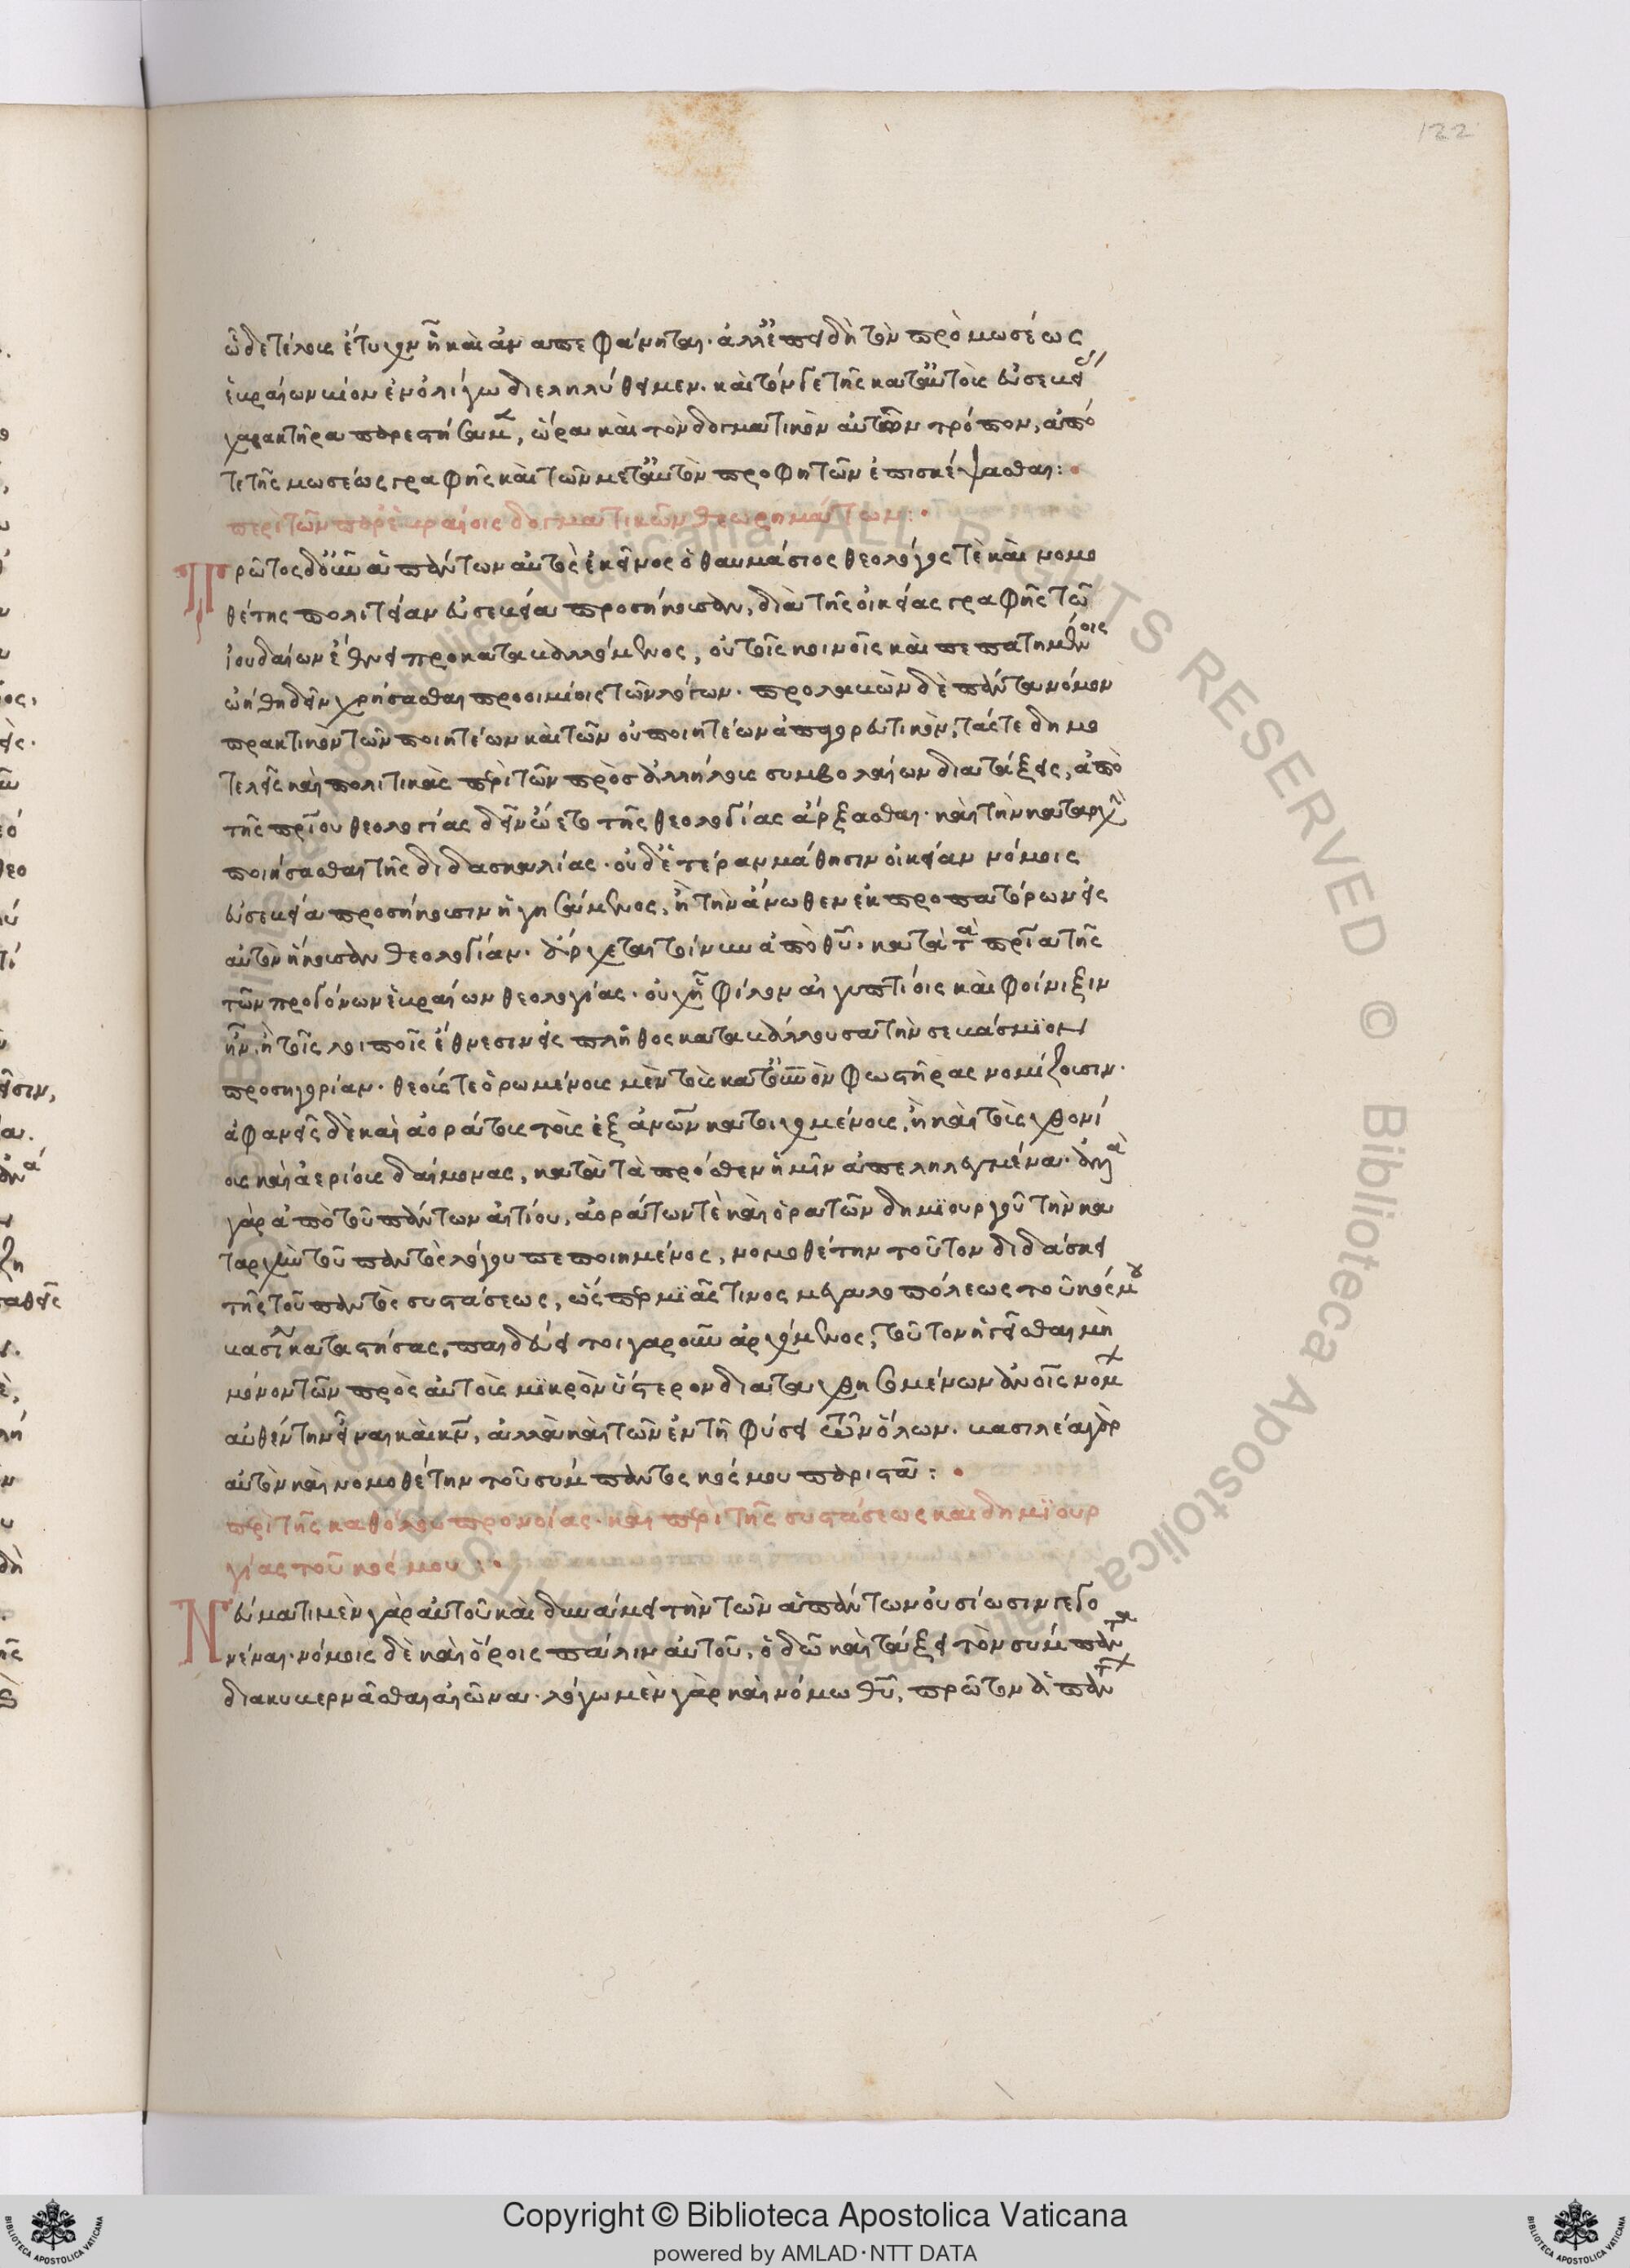 122
ὧδε τέλους ἔτυχον ᾗ καὶ ἀναπεφάνηται. ἀλλ' ἐπειδὴ τὸν πρὸ μωσέως
ἑβραίων βίον ἐν ὀλίγω διεληλύθειμεν. καὶ τόν γε τῆς κατ' αὐτοὺς εὐσεβείας
χαρακτῆρα παρεστήσαμεν, ὥρα καὶ τὸν δογματικὸν αὐτῶν τρόπον, ἀπό
τε τῆς μωσέως γραφῆς καὶ τῶν μετ' αὐτὸν προφητῶν ἐπισκέψασθαι:
περὶ τῶν παρ' ἑβραίοις δογματικῶν θεωρημάτων:
Πρῶτος δ' οὖν ἁπάντων αὐτὸς ἐκεῖνος ὁ θαυμάσιος θεολόγος τὲ καὶ νομο
θέτης πολιτείαν εὐσεβεία προσήκουσαν, διὰ τῆς οἰκείας γραφῆς τῶ
ἰουδαίων ἔθνει προκαταβαλλόμενος, οὐ τοῖς κοινοῖς καὶ πεπατημένοις
ὠήθη δεῖν χρήσασθαι προοιμίοις τῶν λόγων. προλαβὼν δὲ πάντα νόμον
πρακτικὸν τῶν ποιητέων καὶ τῶν οὐ ποιητέων ἀπαγορευτικὸν, τάς τε δημο
τελεῖς καὶ πολιτικὰς περὶ τῶν πρὸς ἀλλήλους συμβολαίων διατάξεις, ἀπὸ
τῆς πατρίου θεολογίας δεῖν ὤετο τῆς θεολογίας ἄρξασθαι. καὶ τὴν καταρχὴν
ποιήσασθαι τῆς διδασκαλίας. οὐδ' ἑτέραν μάθησιν οἰκείαν νόμοις
εὐσεβεία προσήκουσιν ἡγησάμενος, ἢ τὴν ἄνωθεν ἐκ προπατόρων εἰς
αὐτὸν ἥκουσαν θεολογίαν. ἄρχεται τοίνυν ἀπὸ θεοῦ. κατὰ τὰ πάτρια τῆς
τῶν προγόνων ἑβραίων θεολογίας. οὐχ ᾗ φίλον αἰγυπτίοις καὶ φοίνιξιν
ἦν, ἢ τοῖς λοιποῖς ἔθνεσιν εἰς πλῆθος καταβάλλουσι τὴν σεβάσμιον
προσηγορίαν. θεούς τε ὁρωμένους μὲν τοὺς κατ' οὐρανὸν φωστῆρας νομίζουσιν.
ἀφανεῖς δὲ καὶ ἀοράτους τοὺς ἐξ ἀνθρώπων κατοιχομένους, ἢ καὶ τοὺς χθονί
ους καὶ ἀερίους δαίμονας, κατὰ τὰ πρόσθεν ἡμῖν ἀπεληλεγμένα.
γὰρ ἀπὸ τοῦ πάντων αἰτίου, ἀοράτων τὲ καὶ ὁρατῶν δημιουργοῦ τὴν κα
ταρχὴν τοῦ παντὸς λόγου πεποιημένος, νομοθέτην τοῦτον διδάσκει
τῆς τοῦ παντὸς συστάσεως, ὡς περ μιᾶς τινος μεγαλοπόλεως τοῦ κόσμου
βασιλέα καταστήσας, παιδεύει τοιγαροῦν ἀρχόμενος, τοῦτον ἡγεῖσθαι μὴ
μόνον τῶν πρὸς αὐτοὺς μικρὸν ὕστερον διαταχθησομένων ἀνθρώποις νόμων
αὐθέντην εἶναι καὶ κύριον, ἀλλὰ καὶ τῶν ἐν τῆ φύσει τῶν ὅλων. βασιλέα γὰρ
αὐτὸν καὶ νομοθέτην τοῦ σύμπαντος κόσμου παριστᾶ:
περὶ τῆς καθόλου προνοίας. καὶ περὶ τῆς συστάσεως καὶ δημιουρ
γίας τοῦ κόσμου:
Νεύματι μὲν γὰρ αὐτοῦ καὶ δυνάμει τὴν τῶν ἁπάντων οὐσίωσιν γεγο
νέναι. νόμοις δὲ καὶ ὅροις πάλιν αὐτοῦ, ὁδῶ καὶ τάξει τὸν σύμπαντα
διακυβερνᾶσθαι αἰῶνα. λόγω μὲν γὰρ καὶ νόμω θεοῦ, πρῶτον ἁπάντων
Copyright © Biblioteca Apostolica Vaticana
powered by AMLAD·NTT DATA